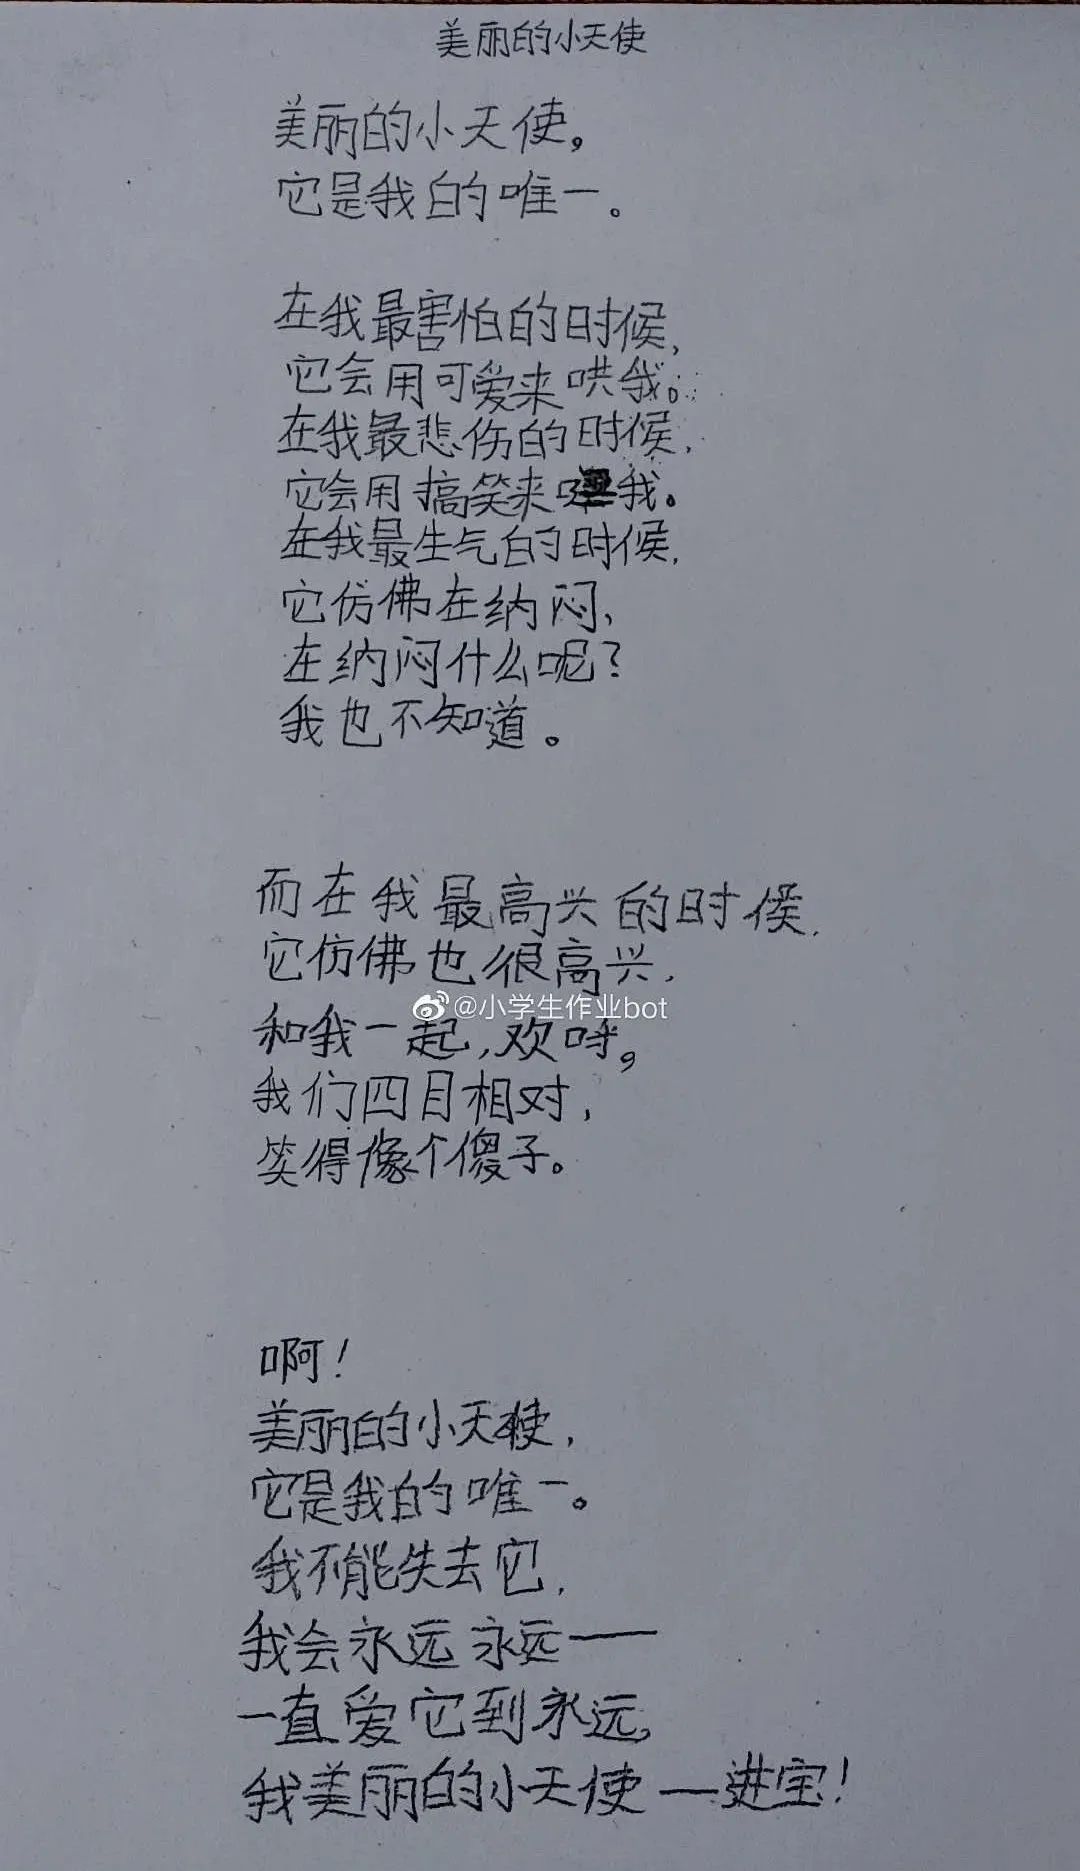 美丽的小天使
美丽的小天使。
它是我的唯一。
在我最害怕的时候,
它会用可爱来哄我。
在我最悲伤的时候,
它会用搞笑来我。
在我最生气的时候,
它仿佛在纳闷,
在纳闷什么呢?
我也不知道。
而在我最高兴的时候,
它仿佛也很高兴,
@小学生作业bot
和我一起,欢呼,
我们四目相对,
笑得像个傻子。
啊!
美丽的小天使,
它是我的唯一。
我不能失去它,
我会永远永远——
一直爱它到永远,
我美丽的小天使—进宝!